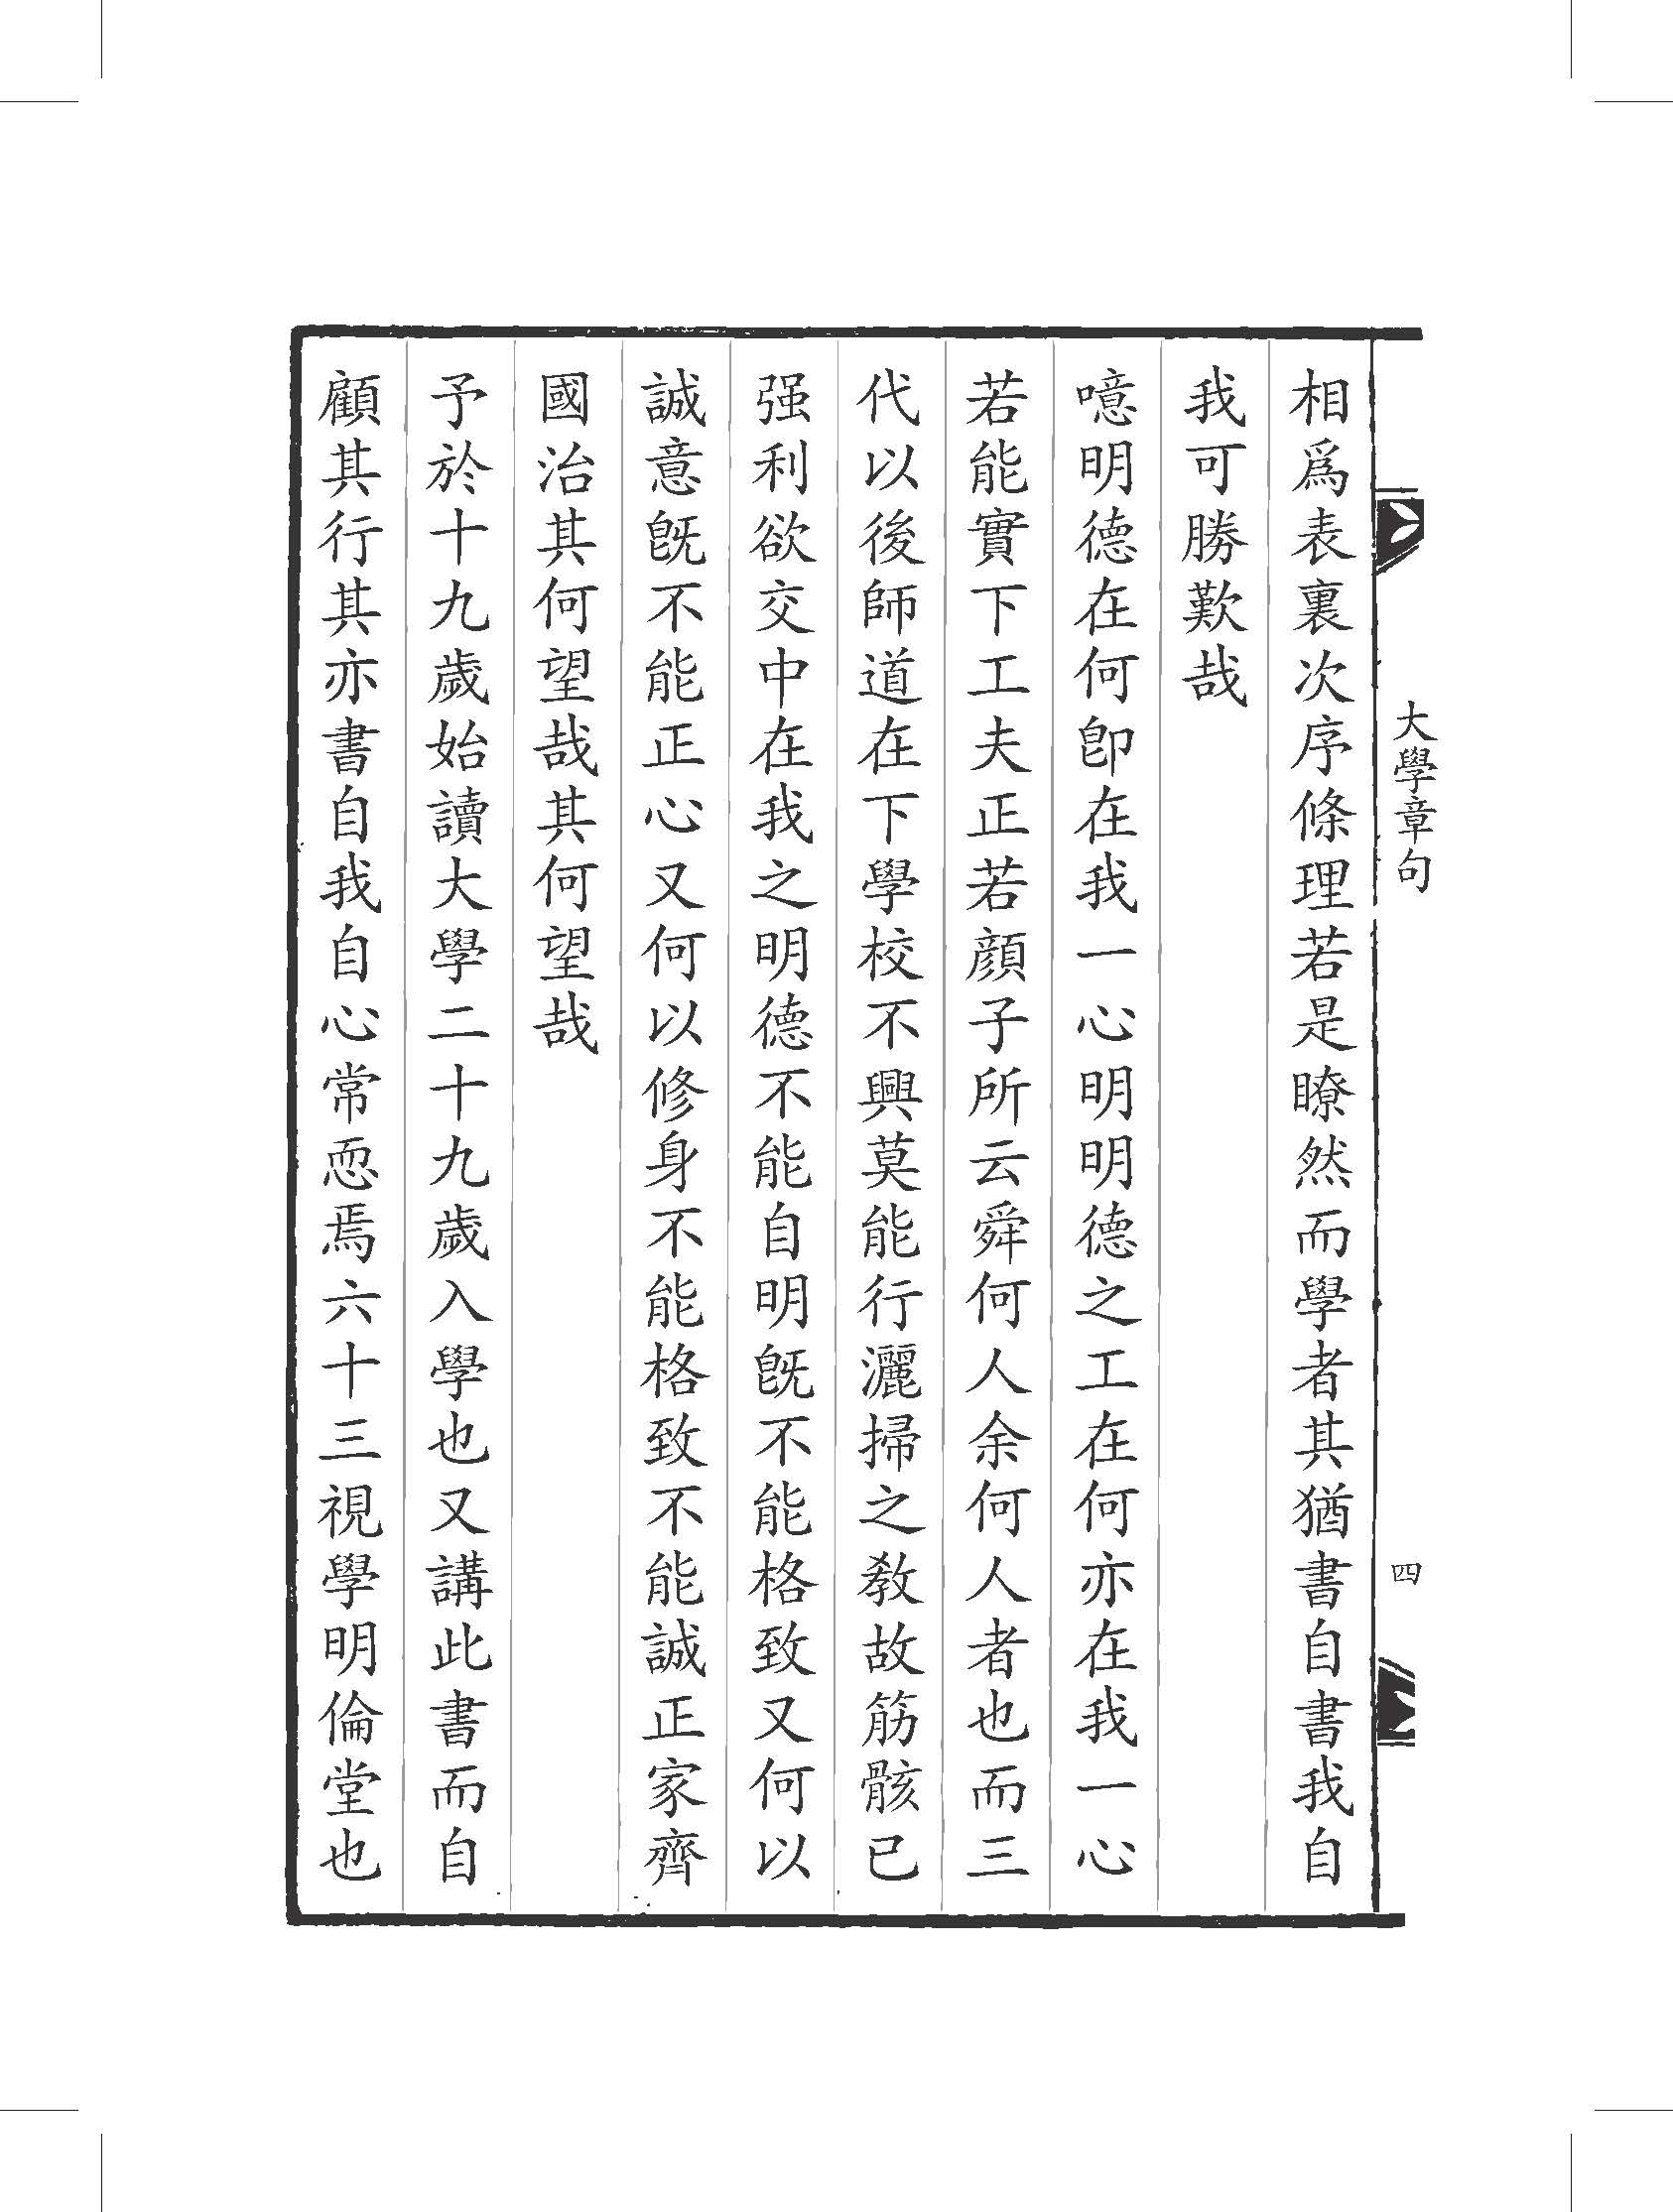 大學章句
四
相爲表裏次序條理若是瞭然而學者其猶書自書我自
我可勝歎哉
噫明德在何卽在我一心明明德之工在何亦在我一心
若能實下工夫正若顔子所云舜何人余何人者也而三
代以後師道在下學校不興莫能行灑掃之敎故筋骸已
强利欲交中在我之明德不能自明旣不能格致又何以
誠意旣不能正心又何以修身不能格致不能誠正家齊
國治其何望哉其何望哉
予於十九歲始讀大學二十九歲入學也又講此書而自
顧其行其亦書自我自心常恧焉六十三視學明倫堂也